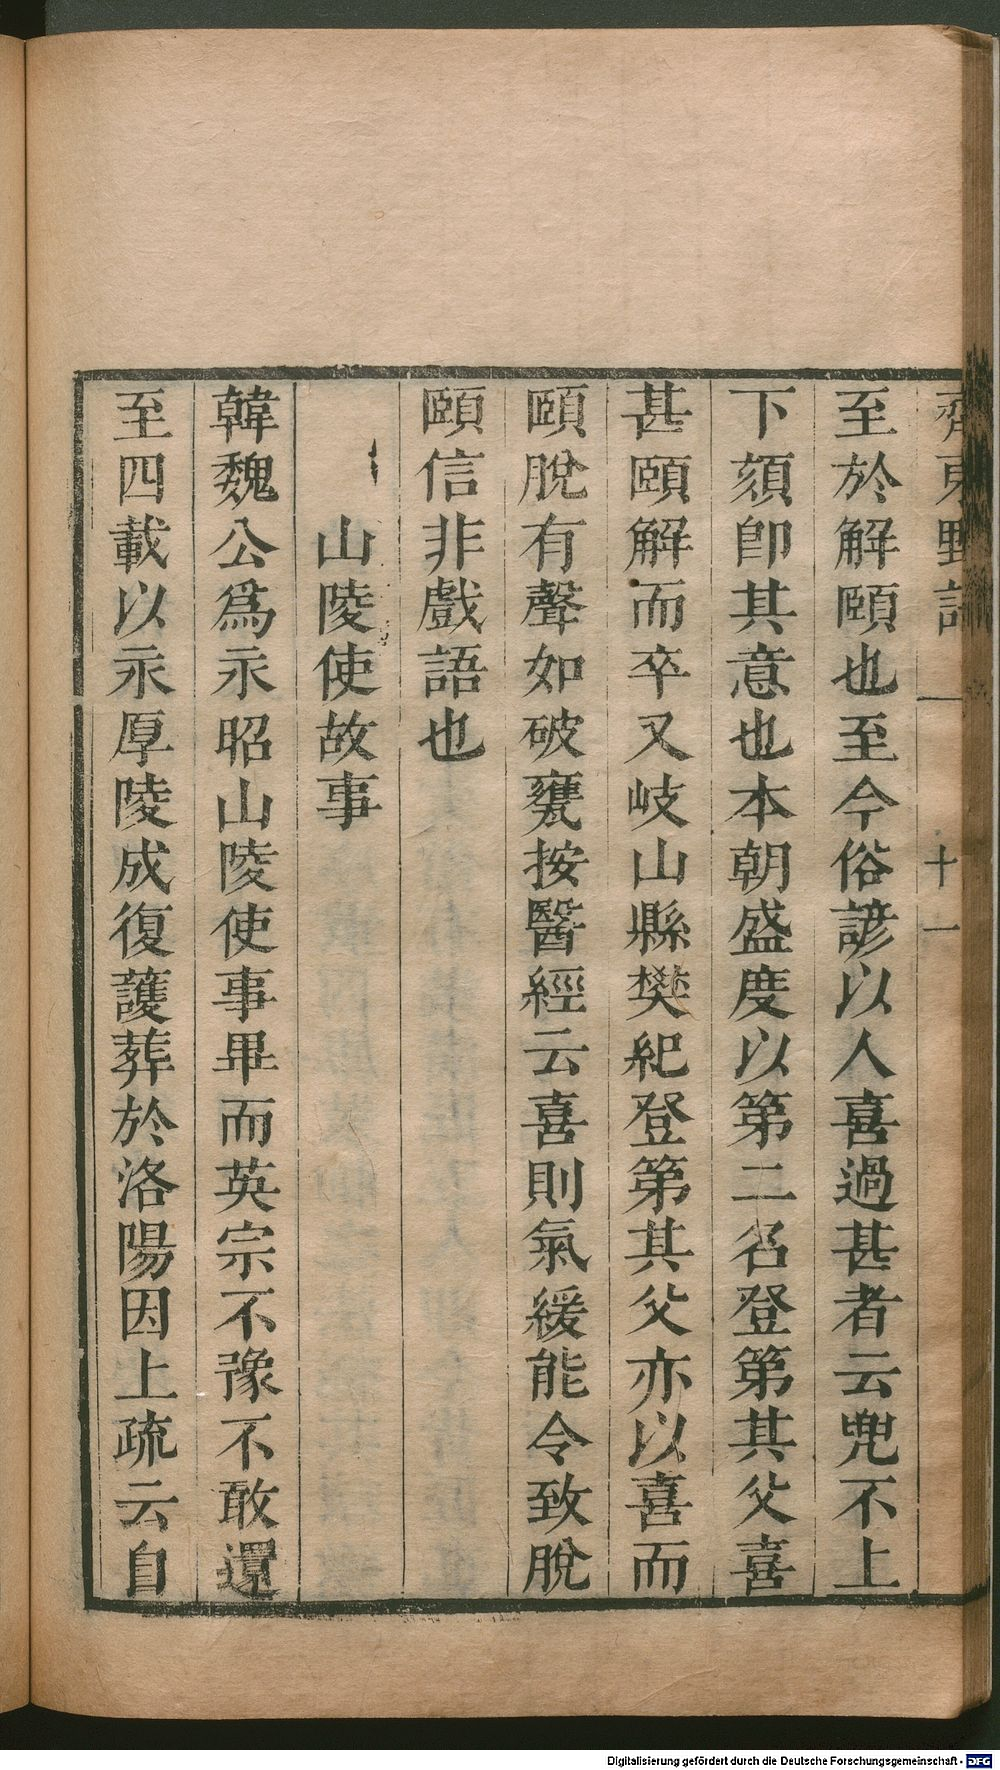 齊東野語 一 十一
至於解頤也至今俗諺以人喜過甚者云兜不上
下頦卽其意也本朝盛度以第二名登第其父喜
甚頤解而卒又岐山縣樊紀登第其父亦以喜而
頤脫有聲如破甕按醫經云喜則氣緩能令致脫
頤信非戲語也
山陵使故事
韓魏公爲永昭山陵使事畢而英宗不豫不敢還
至四載以永厚陵成復護葬於洛陽因上疏云自
Digitalisierung gefördert durch die Deutsche Forschungsgemeinschaft - DFG